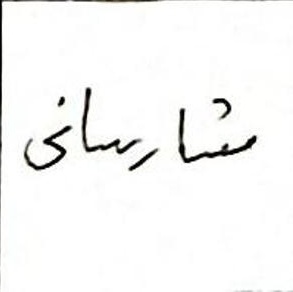 مشارسانی